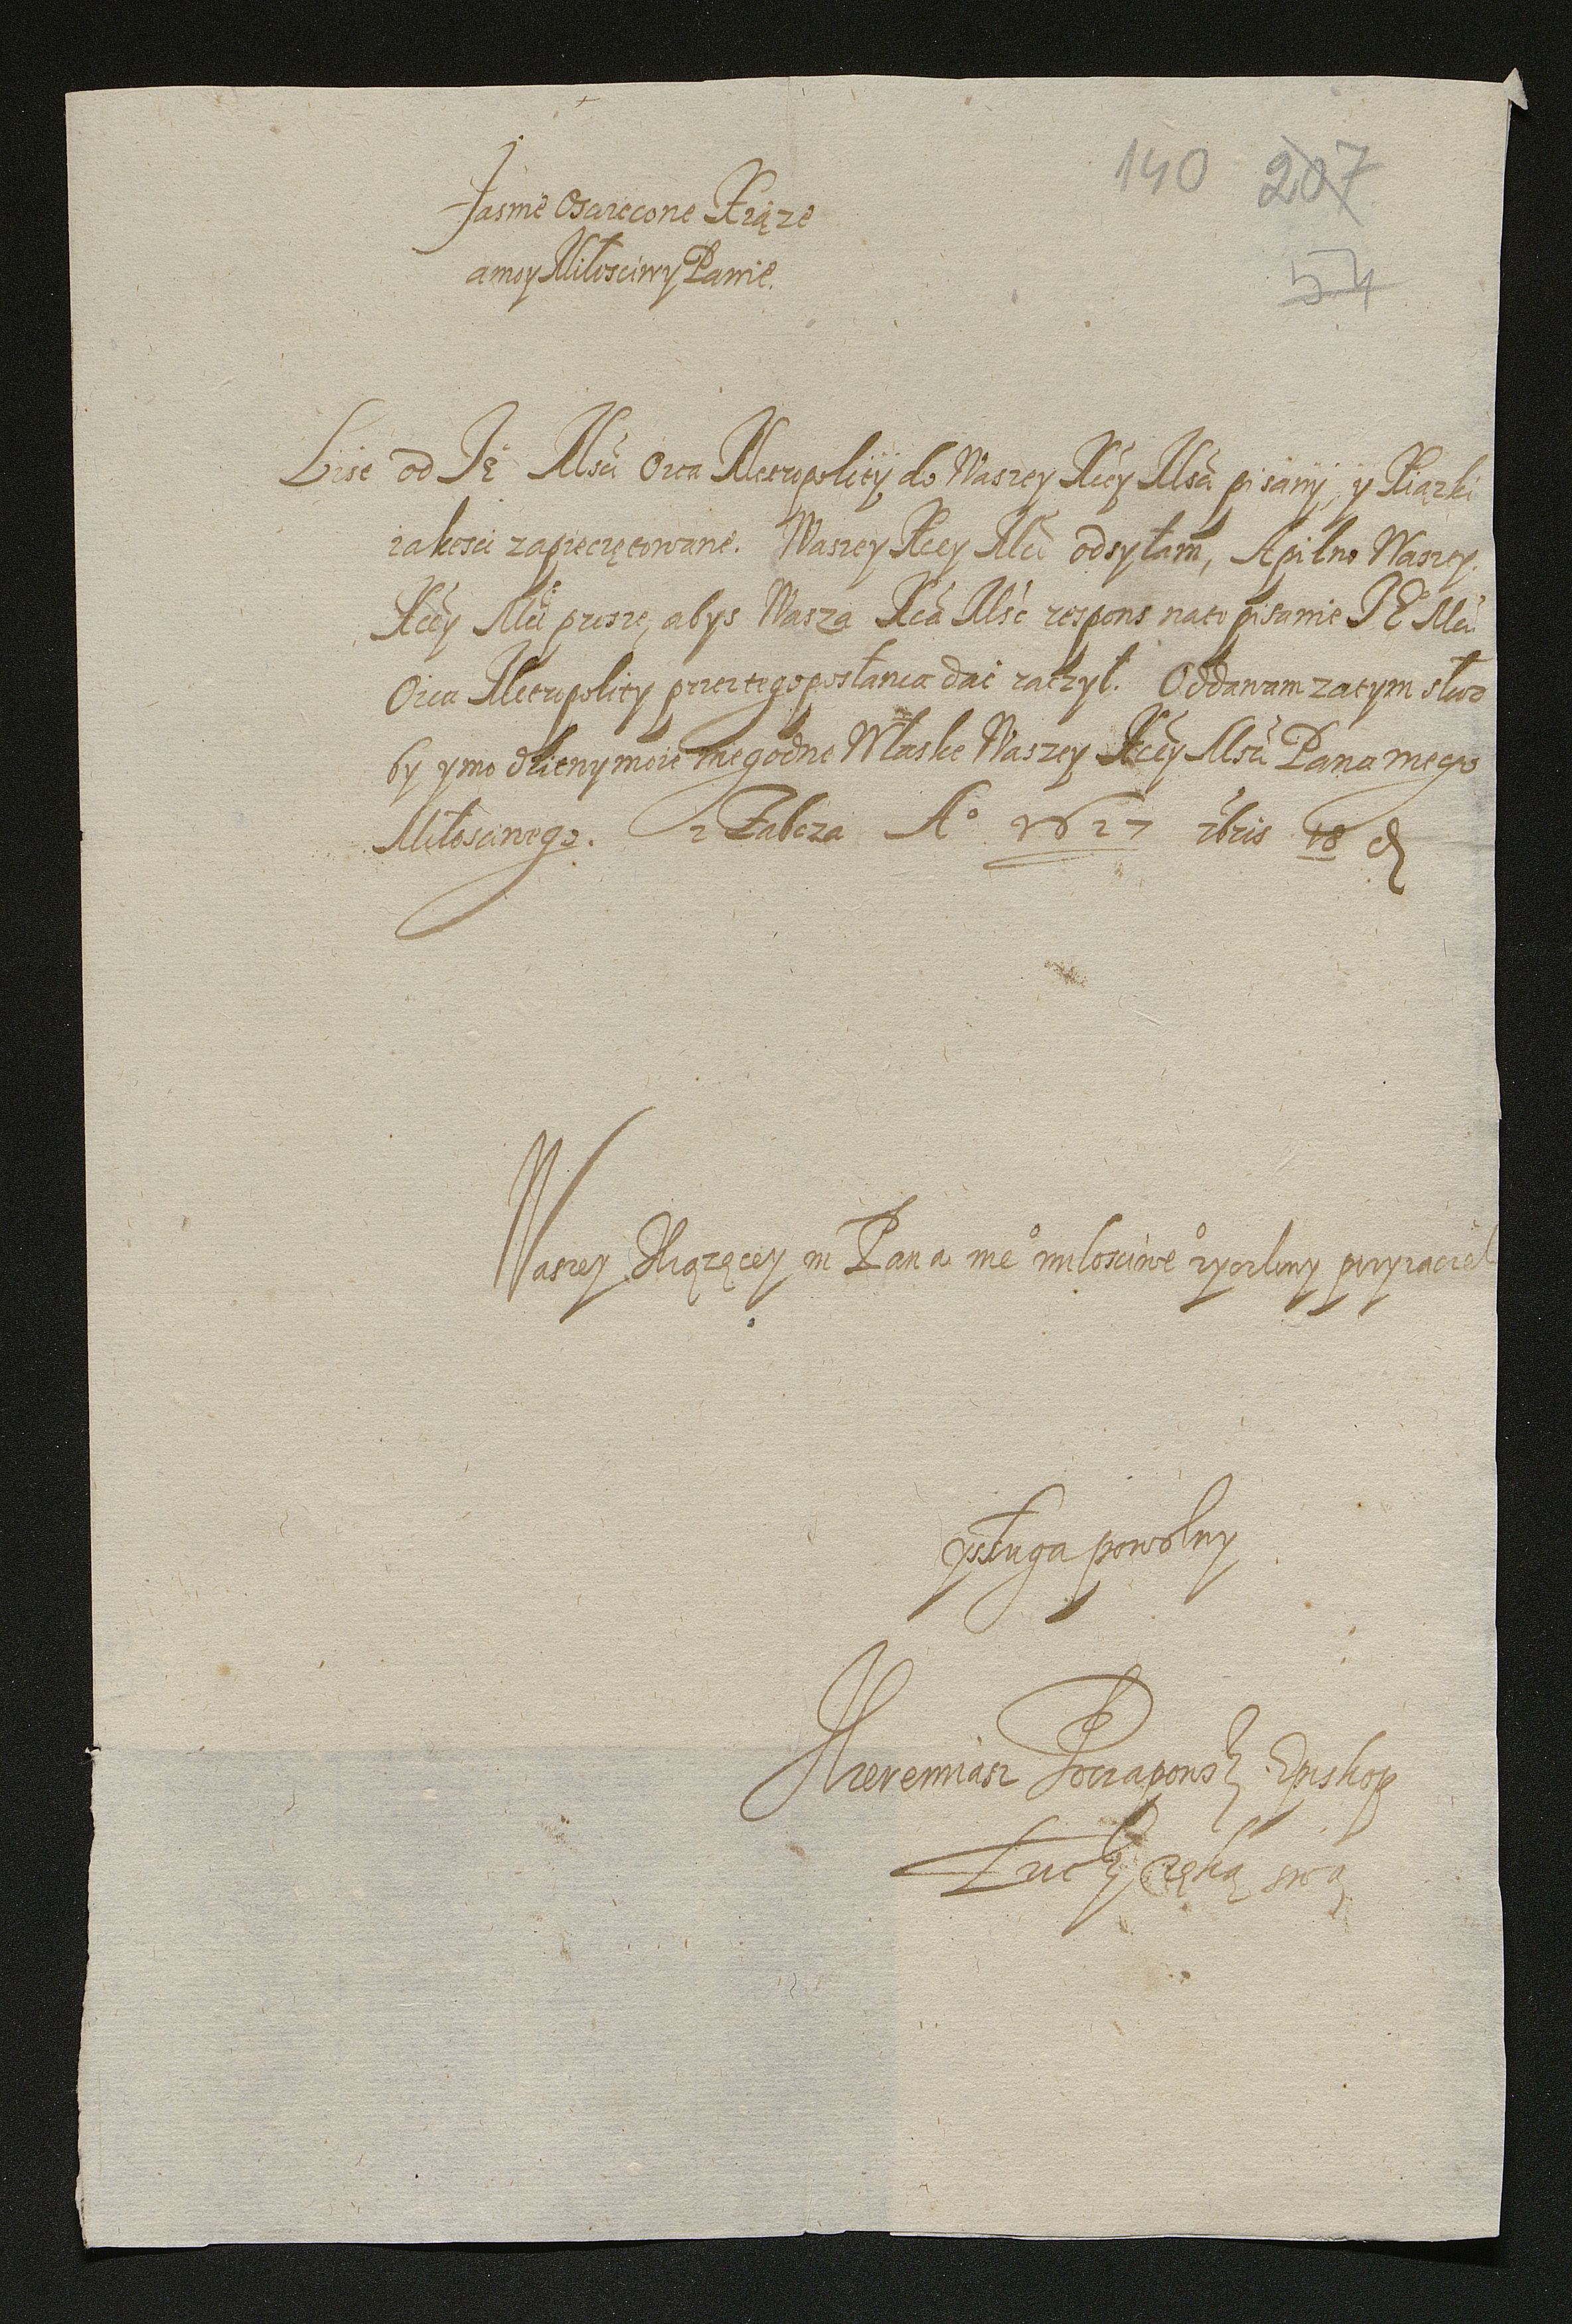 140 207
54
Jasnie Oswiecone Xiąze
a moy Miłosciwy Panie.
List od Je° Msci Oica Metropolity do Waszey Xcey Msci pisany, y Xiązki
iakosci zapieczętowane. Waszey Xcey Mci odsyłam, A pilno Waszey
Xcey Mci prosze, abys Wasza Xca Msć respons na to pisanie JE° Mci
Oica Metropolity przez tego posłanca dać raczył. Oddawam zatym słuz
by y mo dlitwy moie niegodne W łaske Waszey Xcey Msci Pana mego
Miłosciwego. z Zabcza A° 1627 Xbris 18 d
Waszey Xiązęcey m Pana me° milosciwe° zyczliwy przyiaciel
y sługa powolny
Hieremiasz Poczapowsky Episkop
Łucky ręką swą